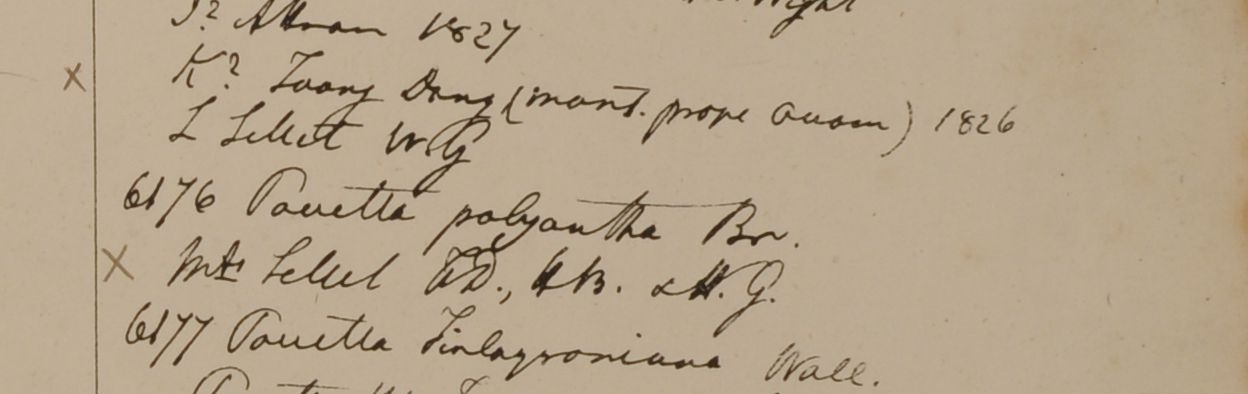 J? Attran 1827
K? Toong Dong (mont. prope Avam) 1826
L Sillet W.G
6176 Pavetta polyantha Br.
Mts Sillet F.D., H.B. & W.G.
6177 Pavetta Finlaysoniana Wall.